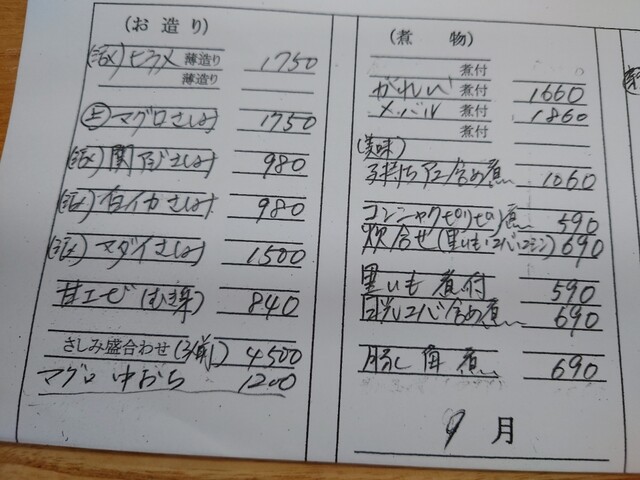 (お造り)
(活〆)ヒラメ 薄造り 1750
薄造り
(上)マグロさしみ 1750
(活〆)関アジさしみ 980
(活〆)白イカさしみ 980
(活〆)マダイさしみ 1500
甘エビ(むき身) 840
さしみ盛合わせ(3人前) 4500
マグロ中おち 1200
(煮物)
煮付
かれい 煮付 1660
メバル 煮付 1860
煮付
(美味)
子持ちアユ含め煮 1060
コンニャクピリピリ煮 590
炊合せ(里いも・エビ・ニシン) 690
里いも煮付 590
含め煮 690
豚し角煮 690
9月